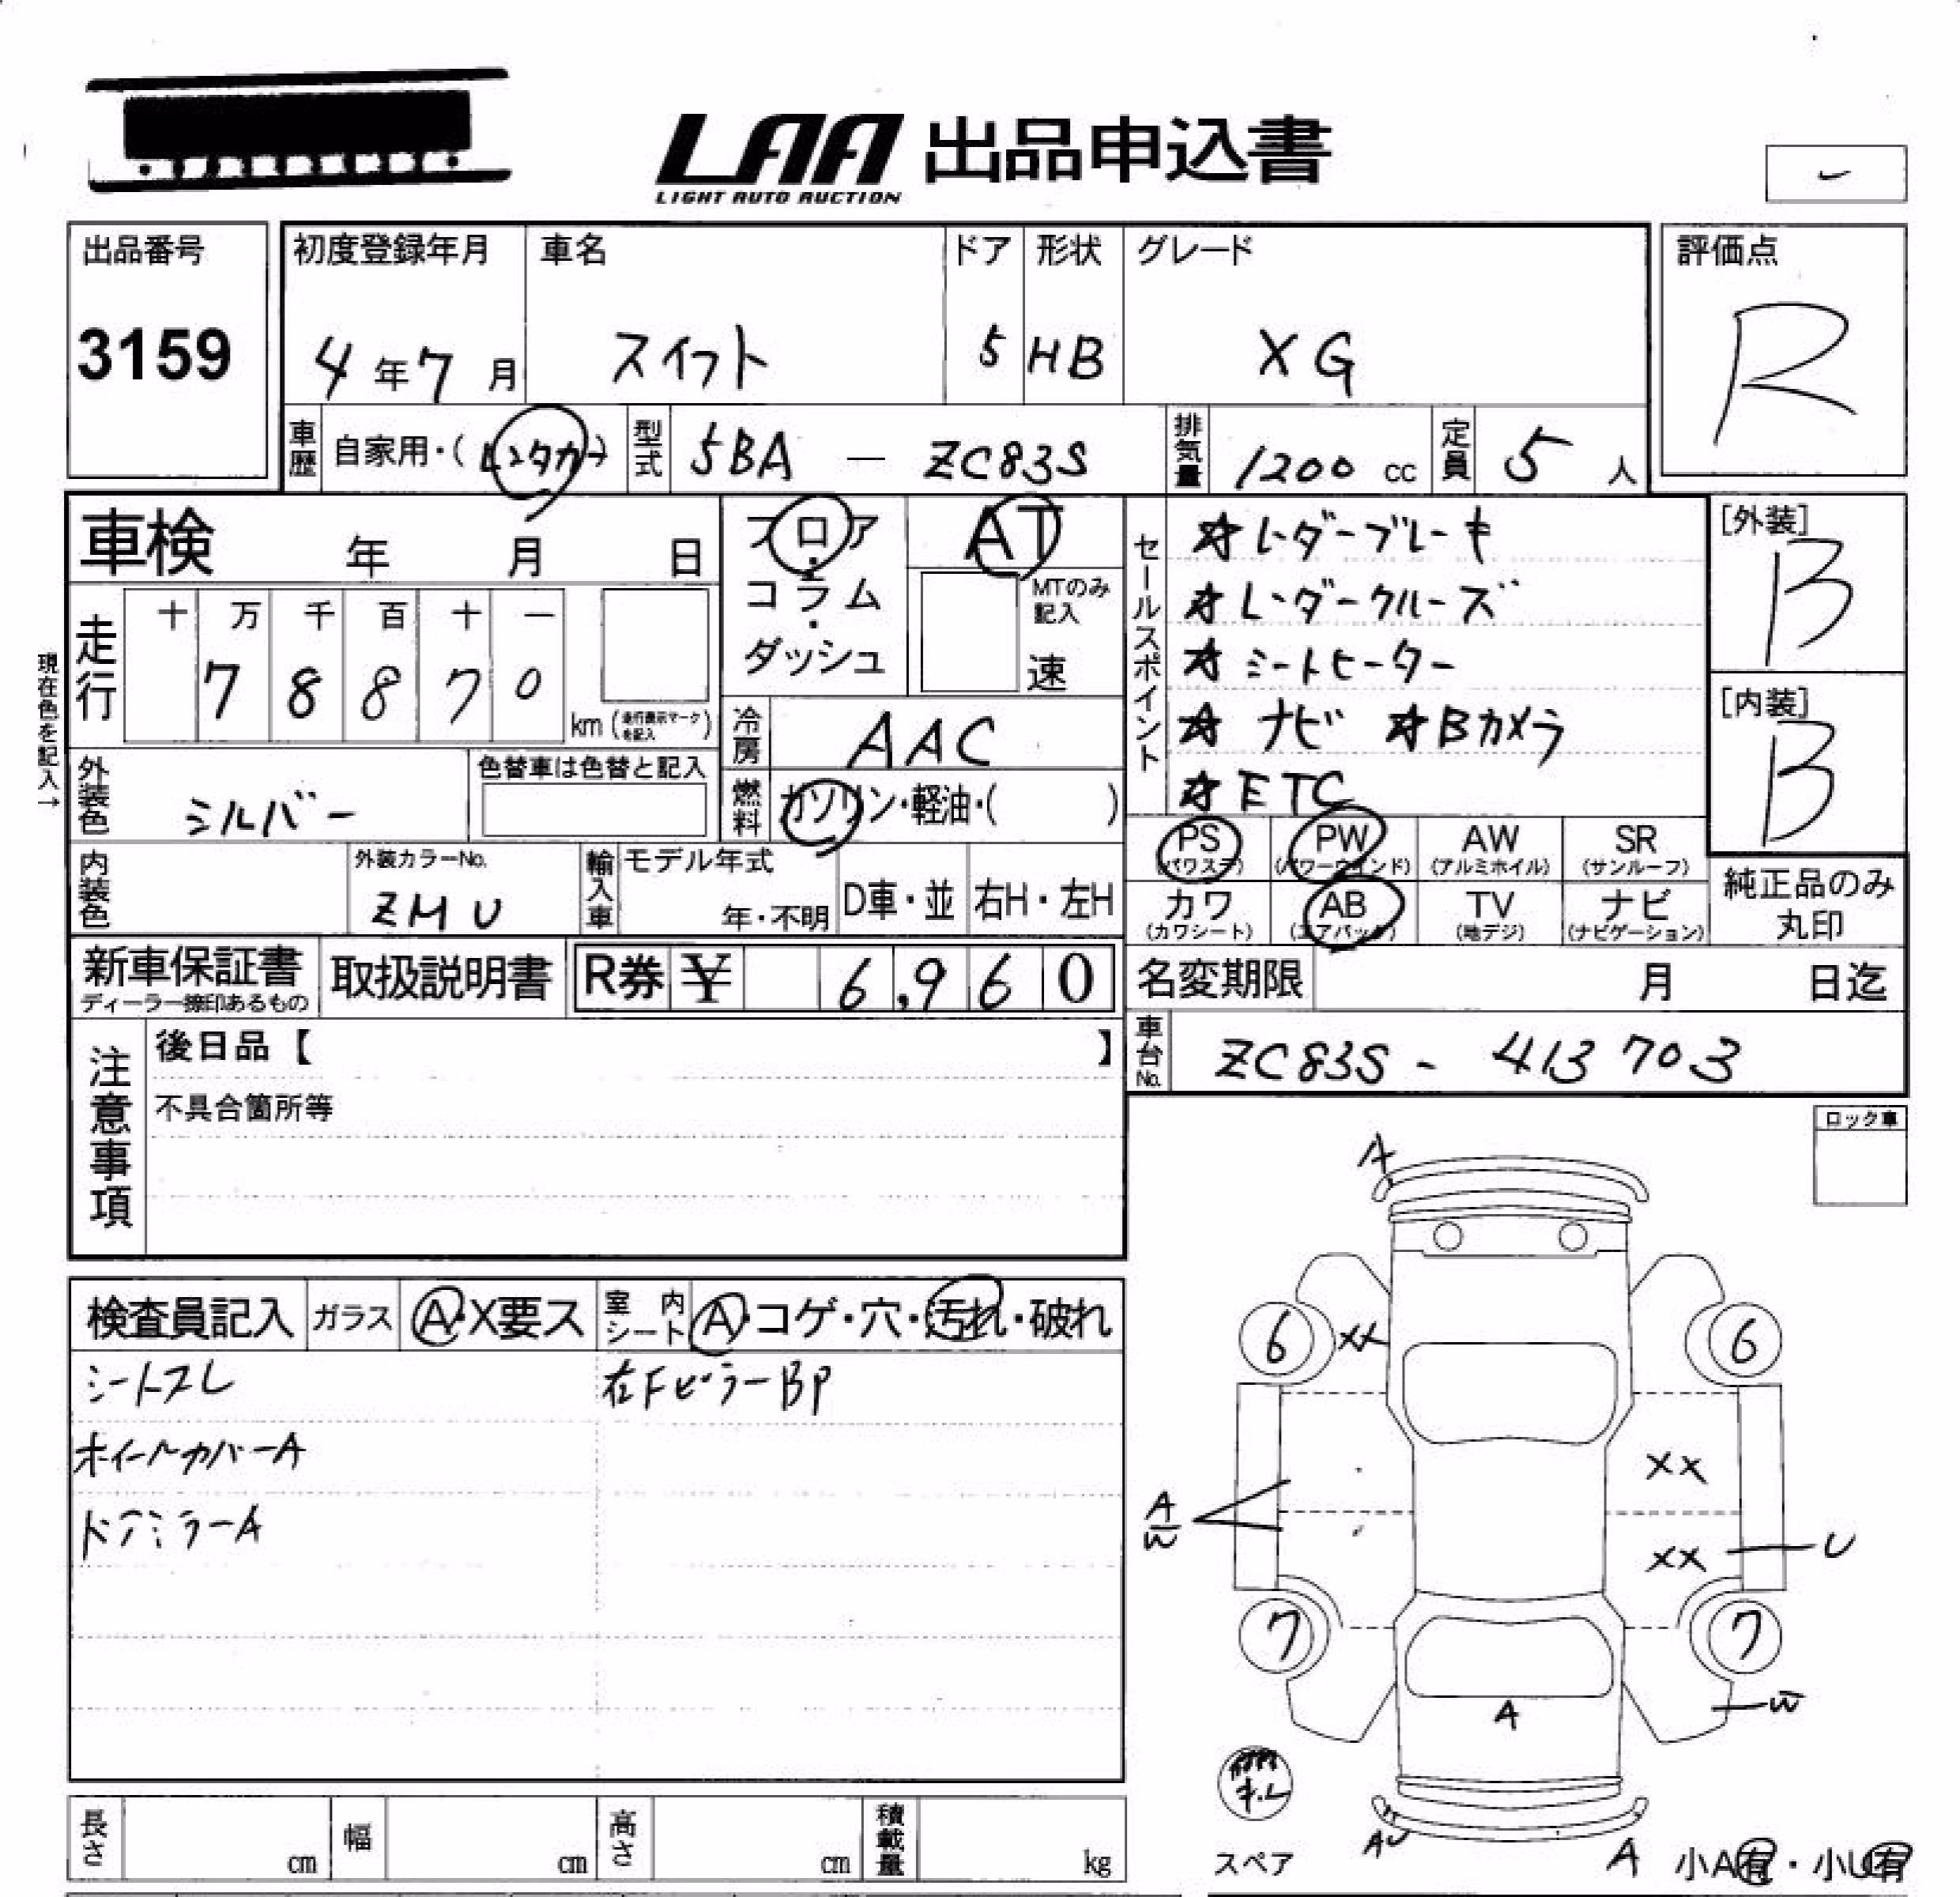 LAA 出品申込書
LIGHT AUTO AUCTION
出品番号
3159
初度登録年月
4年7月
車名
スイフト
ドア
5
形状
HB
グレード
XG
評価点
R
車歴 自家用・(レンタカー)
型式 5BA — ZC83S
排気量 1200 cc
定員 5 人
車検 年 月 日
フロア・コラム・ダッシュ
AT
MTのみ記入
速
セールスポイント
☆レーダーブレーキ
☆レーダークルーズ
☆シートヒーター
☆ナビ ☆Bカメラ
☆ETC
[外装]
B
[内装]
B
現在色を記入→
走行
十 万 千 百 十 一
7 8 8 7 0
km (走行表示マークを記入)
冷房 AAC
外装色 シルバー
色替車は色替と記入
燃料 ガソリン・軽油・( )
内装色
外装カラーNo.
ZMU
輸入車
モデル年式
年・不明
D車・並
右H・左H
PS (パワステ)
PW (パワーウインド)
AW (アルミホイル)
SR (サンルーフ)
カワ (カワシート)
AB (エアバック)
TV (地デジ)
ナビ (ナビゲーション)
純正品のみ丸印
新車保証書
ディーラー捺印あるもの
取扱説明書
R券 ¥ 6,960
名変期限 月 日迄
車台No. ZC83S - 413703
注意事項
後日品【 】
不具合箇所等
ロック車
検査員記入
ガラス A・X要ス
室内シート A・コゲ・穴・汚れ・破れ
シートスレ
右FピラーBP
ホイールカバーA
ドアミラーA
A
6 XX 6
XX
A
W
XX U
7 7
A W
AU
A
スペア
小A有・小U有
長さ cm
幅 cm
高さ cm
積載量 kg